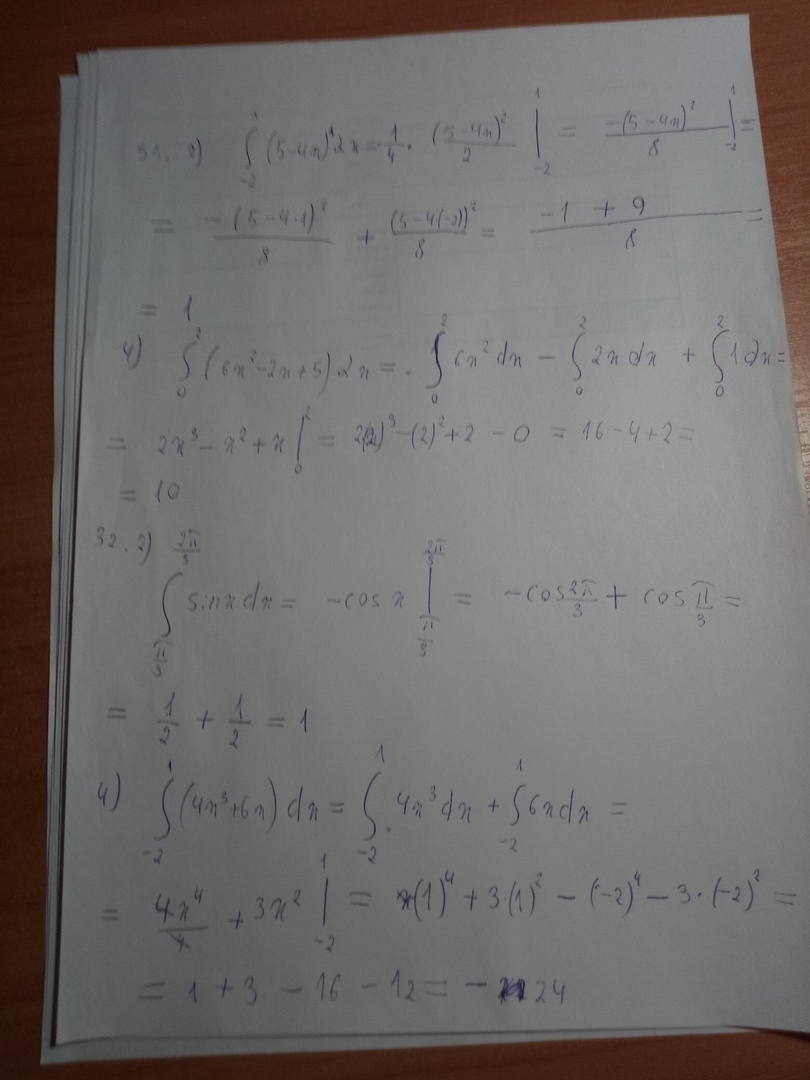 31. 2) ∫₋₂¹ (5-4x)¹ dx = -1/4 · (5-4x)²/2 |₋₂¹ = -(5-4x)²/8 |₋₂¹ =
= -(5-4·1)²/8 + (5-4(-2))²/8 = -1 + 9/8 =
= 1
4) ∫₀² (6x²-2x+5) dx = ∫₀² 6x² dx - ∫₀² 2x dx + ∫₀² 1 dx =
= 2x³ - x² + x |₀² = 2(2)³ - (2)² + 2 - 0 = 16 - 4 + 2 =
= 10
32. 2) ∫_{π/3}^{2π/3} sin x dx = -cos x |_{π/3}^{2π/3} = -cos 2π/3 + cos π/3 =
= 1/2 + 1/2 = 1
4) ∫₋₂¹ (4x³+6x) dx = ∫₋₂¹ 4x³ dx + ∫₋₂¹ 6x dx =
= 4x⁴/4 + 3x² |₋₂¹ = (1)⁴ + 3·(1)² - (-2)⁴ - 3·(-2)² =
= 1 + 3 - 16 - 12 = - 24